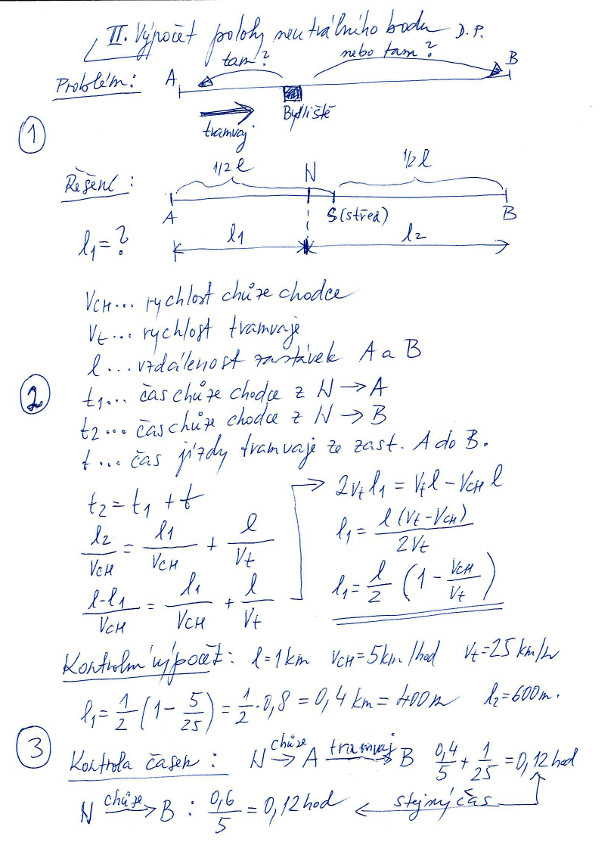 II. Výpočet polohy neutrálního bodu D.P.
tam? nebo tam?
Problém: A B
Bydliště
tramvaj
1
1/2 l N 1/2 l
Řešení:
A S (střed) B
l₁ = ? l₁ l₂
V_CH... rychlost chůze chodce
V_t... rychlost tramvaje
l ... vzdálenost zastávek A a B
2
t₁... čas chůze chodce z N → A
t₂... čas chůze chodce z N → B
t... čas jízdy tramvaje ze zast. A do B.
t₂ = t₁ + t
l₂/V_CH = l₁/V_CH + l/V_t
l-l₁/V_CH = l₁/V_CH + l/V_t
2V_t l₁ = V_t l - V_CH l
l₁ = l (V_t - V_CH)/2V_t
l₁ = l/2 (1 - V_CH/V_t)
Kontrolní výpočet: l = 1 km V_CH = 5 km/hod V_t = 25 km/h
l₁ = 1/2 (1 - 5/25) = 1/2 · 0,8 = 0,4 km = 400 m l₂ = 600 m.
3
Kontrola časem: N chůze→ A tramvaj→ B 0,4/5 + 1/25 = 0,12 hod
N chůze→ B : 0,6/5 = 0,12 hod ← stejný čas